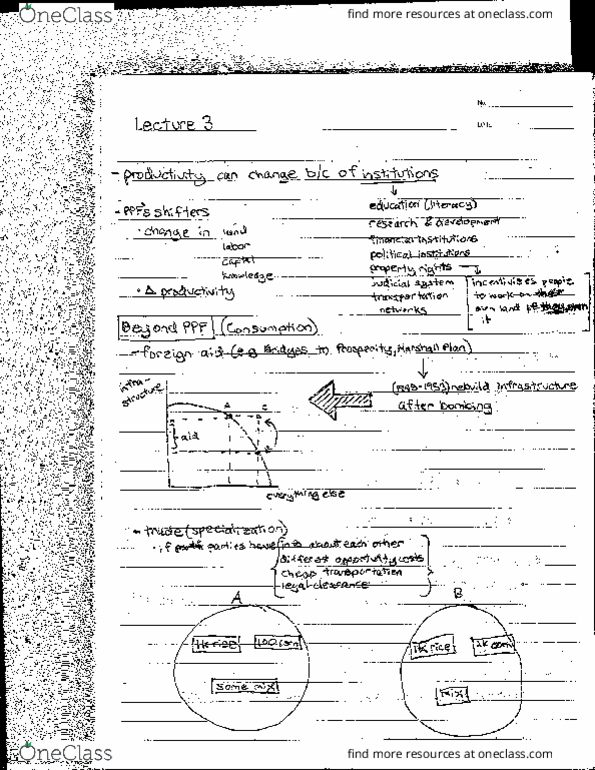 OneClass
find more resources at oneclass.com
No.
DATE
Lecture 3
- productivity can change b/c of institutions
↓
education (literacy)
- PPFs shifters
research & development
• change in land
financial institutions
labor
political institutions
capital
property rights →
knowledge
judicial system
incentivizes people
• Δ productivity
transportation
to work on
networks
own land if they own
it
Beyond PPF (Consumption)
- foreign aid (e.g. Bridges to Prosperity, Marshall Plan)
↓
infra-
structure
rebuild infrastructure
after bombing
A
C
aid
everything else
- trade (specialization)
• if parties have info about each other
different opportunity costs
cheap transportation
legal clearance
A
B
1k rice
1k rice
2k corn
some mix
mix
OneClass
find more resources at oneclass.com